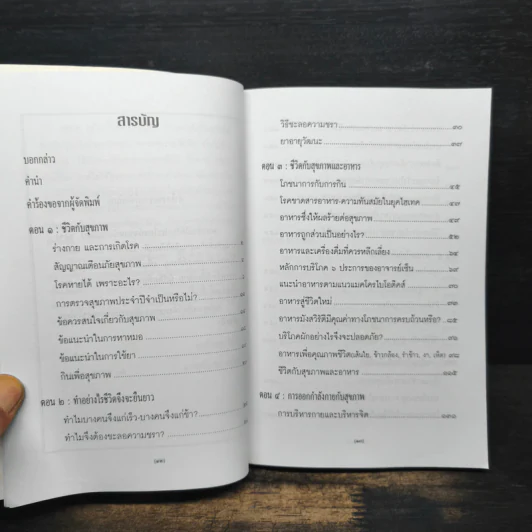 สารบัญ
บอกกล่าว
คำนำ
คำร้องขอจากผู้จัดพิมพ์
ตอน ๑ : ชีวิตกับสุขภาพ
ร่างกาย และการเกิดโรค
สัญญาณเตือนภัยสุขภาพ
โรคหายได้ เพราะอะไร?
การตรวจสุขภาพประจำปีจำเป็นหรือไม่?
ข้อควรสนใจเกี่ยวกับสุขภาพ
ข้อแนะนำในการหาหมอ
ข้อแนะนำในการใช้ยา
กินเพื่อสุขภาพ
ตอน ๒ : ทำอย่างไรชีวิตจึงจะยืนยาว
ทำไมบางคนจึงแก่เร็ว-บางคนจึงแก่ช้า?
ทำไมจึงต้องชะลอความชรา?
วิธีชะลอความชรา
ยาอายุวัฒนะ ๓๗
ตอน ๓ : ชีวิตกับสุขภาพและอาหาร
โภชนาการกับการกิน ๔๕
โรคขาดสารอาหาร-ความทันสมัยในยุคไฮเทค
อาหารซึ่งให้ผลร้ายต่อสุขภาพ ๔๙
อาหารถูกส่วนเป็นอย่างไร? ๕๒
อาหารและเครื่องดื่มที่ควรหลีกเลี่ยง
หลักการบริโภค ๖ ประการของอาจารย์เซ็น
แนะนำอาหารตามแนวแมคโครไบโอติคส์
อาหารสู่ชีวิตใหม่
อาหารมังสวิรัติมีคุณค่าทางโภชนาการครบถ้วนหรือ? ๘๕
บริโภคผักอย่างไรจึงจะปลอดภัย?
อาหารเพื่อคุณภาพชีวิต
ชีวิตกับสุขภาพและอาหาร ๑๑๕
ตอน ๔ : การออกกำลังกายกับสุขภาพ
การบริหารกายและบริหารจิต